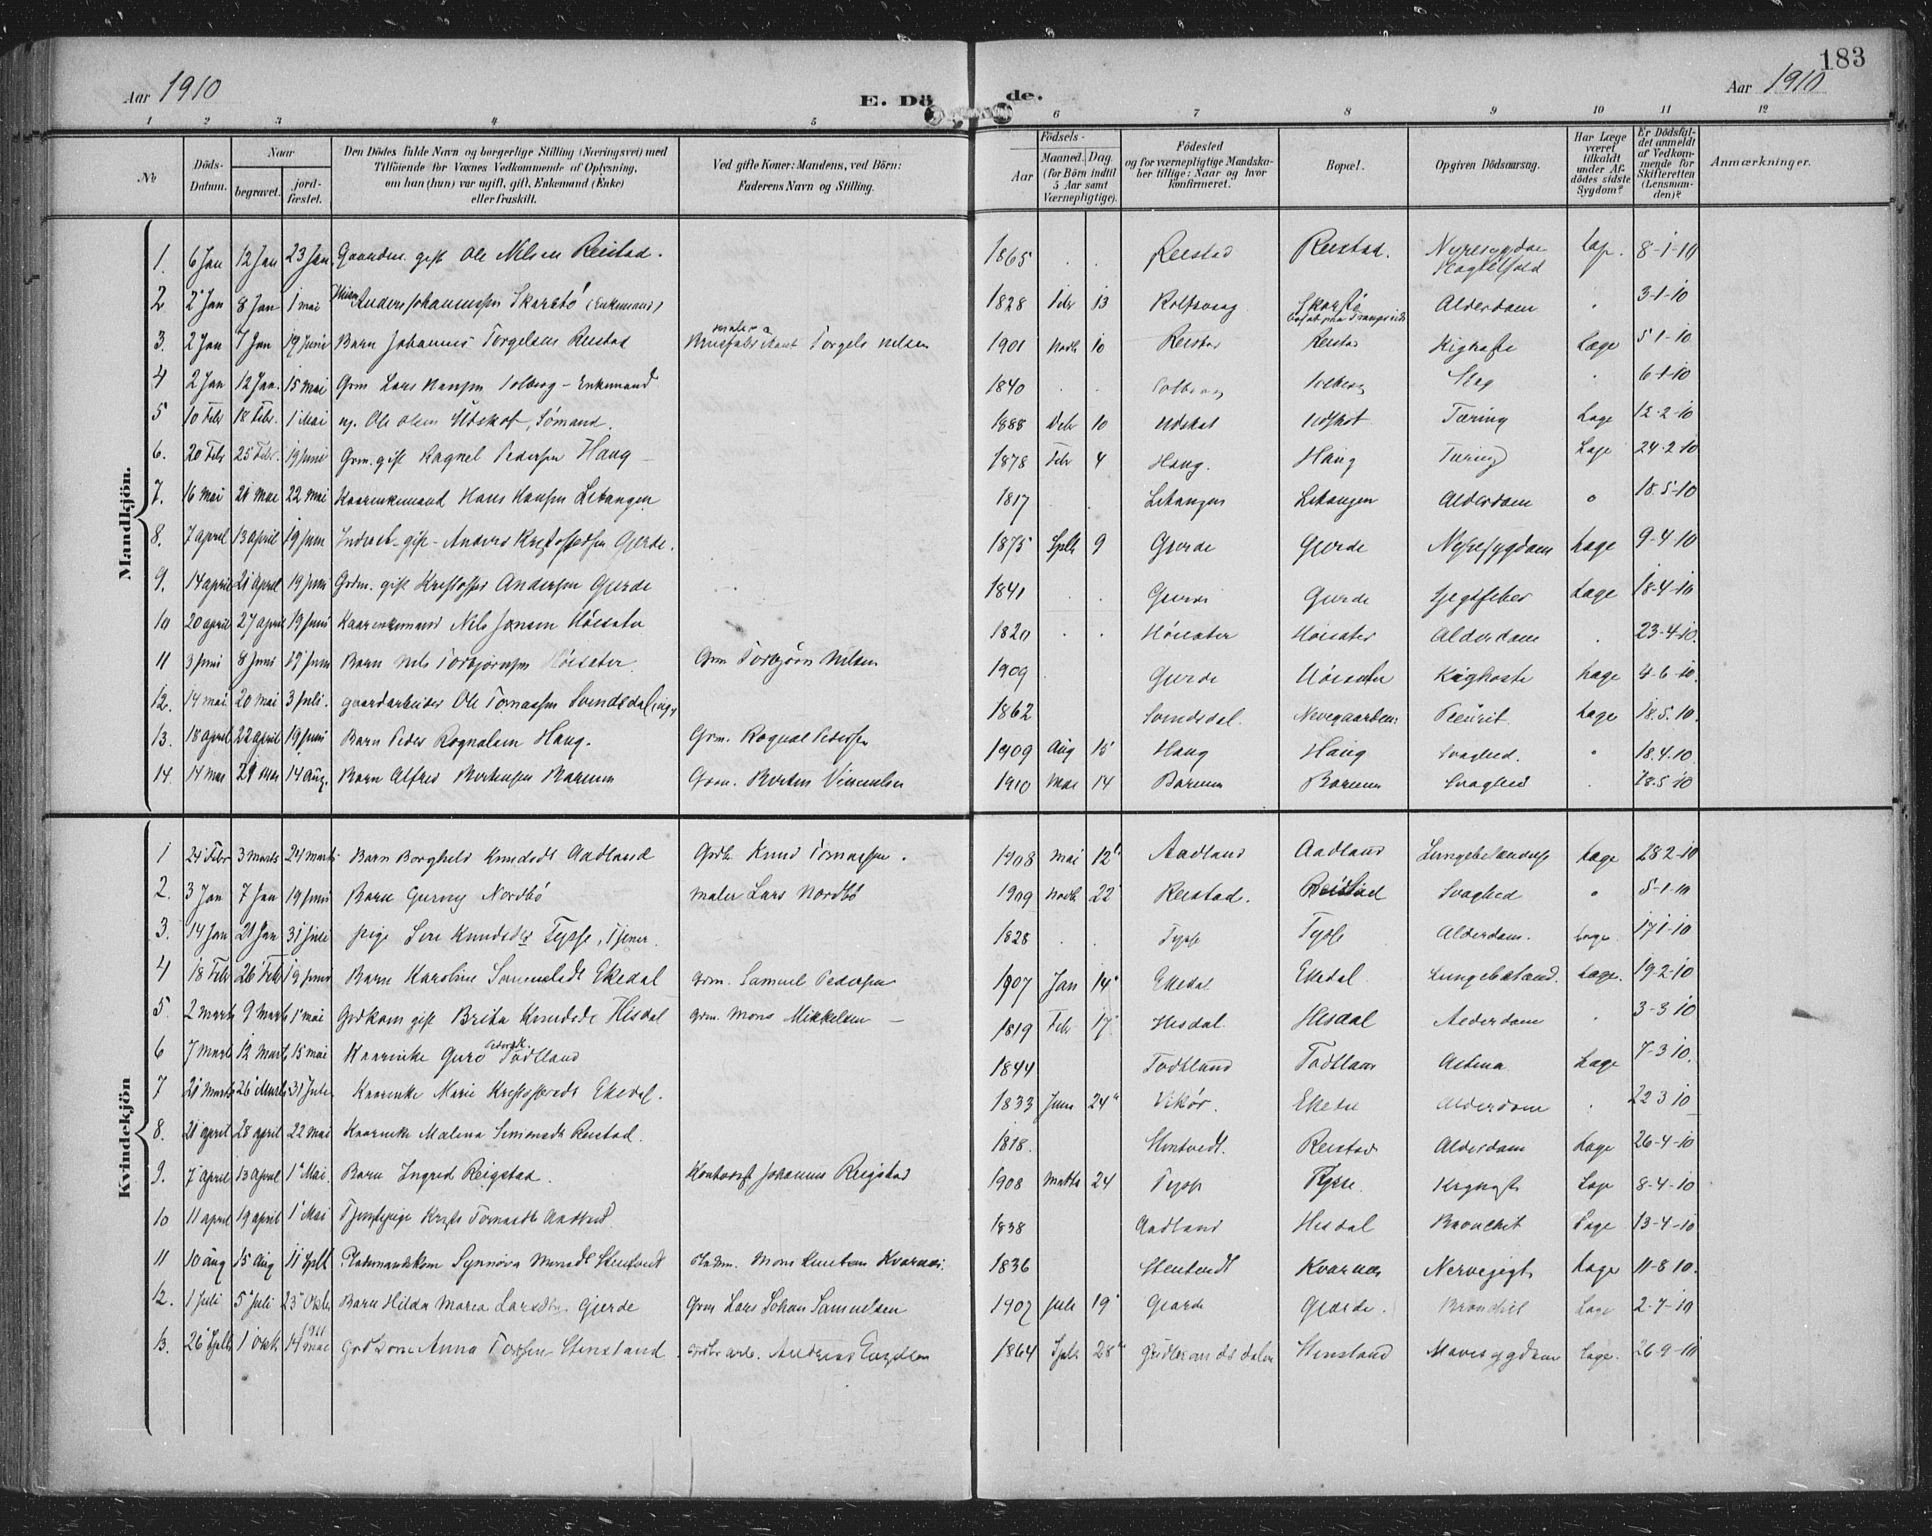 183
Aar 1910
E. Dö de.
Aar 1910
1 2 3 4 5 6 7 8 9 10 11 12
No
Döds-Datum.
Naar
begravet.
jord-fæstet.
Den Dödes fulde Navn og borgerlige Stilling (Næringsvei) med
Tilföiende for Voxnes Vedkommende af Oplysning,
om han (hun) var ugift, gift, Enkemand (Enke)
eller fraskilt.
Ved gifte Koner: Mandens, ved Börn:
Faderens Navn og Stilling.
Födsels-
Aar
Maaned. Dag.
(for Börn indtil
5 Aar samt
Værnepligtige).
Födested
og for værnepligtige Mandska-
ber tillige: Naar og hvor
konfirmeret.
Bopæl.
Opgiven Dödsaarsag.
Har Læge
været
tilkaldt
under Af-
dödes sidste
Sygdom?
Er Dödsfal-
det anmeldt
af Vedkom-
mende for
Skifteretten
(Lensman-
den)?
Anmærkninger.
Mandkjön.
1. 6 Jan 12 Jan 23 Jan gift Ole Nilsen Reistad. 1865 Reistad Reistad. Nyresygdom 8-1-10
2 2 Jan 8 Jan 1 mai Anders Johannessen Skarstö (Enkemand) 1828 Febr 13 Rolfsvaag Skarstö Alderdom 3-1-10
3. 2 Jan 7 Jan 19 Juni Barn Johannes Torgelsen Reistad Torgels Nilsen 1901 Novb 10 Reistad Reistad Kighoste Læge 5-1-10
4 2 Jan 12 Jan. 15 mai Grm Lars Hansen Solberg - Enkemand 1840 Solberg Solberg Slag 6-1-10
5 10 Febr 18 Febr. 1 Mai ug. Ole Olsen Udskot, Sömand. 1888 Debr 10 Udskot Udskot Tæring Læge 12-2-10
6. 20 Febr 25 Febr. 19 Juni Grm. gift Ragnel Pedersen Haug 1878 Febr 4 Haug. Haug Tæring Læge 24-2-10
7. 16 mai 21 mai 22 mai Kaarenkemand Hans Hansen Leivangen 1817 Leivangen Leivangen Alderdom 18-5-10
8. 7 april 13 april 19 Juni Inderst - gift - Anders Kristoffersen Gjerde. 1875 Septb 9 Gjerde Gjerde Nyresygdom Læge 9-4-10
9. 14 april 21 april 19 Juni Grdm. gift Kristoffer Andersen Gjerde 1841 Gjerde Gjerde Læge 18-4-10
10 20 april 27 april 19 Juni Kaarenkemand Nils Jonsen Höisæter 1820 Höisæter Höisæter Alderdom 23-4-10.
11 3 Juni 8 Juni 19 Juni Barn Nils Torbjörnsen Höisæter Grm Torbjörn Nilsen 1909 Gjerde Höisæter Kighoste Læge 4-6-10.
12. 14 mai 20 mai 3 Juli. gaardarbeider Ole Tomassen Svendsdal, ug. 1862 Svendsdal. Nevegaarden Pleurit. Læge 18.5.10.
13. 18 april 22 april 19 Juni Barn Peder Rognalsen Haug. Grm. Rognal Pedersen 1909 Aug 15 Haug Haug Svaghed. 18.4.10
14. 14 mai 21 mai 14 Aug. Barn Alfred Bertinsen Barmen Grm. Bertin 1910 Mai 14 Barmen Barmen Svaghed 18.5.10
Kvindekjön
1 24 Febr 3 marts 24 marts Barn Borghild Knudsdt Aadland Grdb. Knud Tomassen. 1908 mai 12 Aadland Aadland Lungebetændelse Læge 28-2-10
2. 3 Jan 7 Jan 19 Juni Barn Gurny Nordbö maler Lars Nordbö 1909 Novb. 22 Reistad. Reistad Svaghed 5-1-10
3. 14 Jan 21 Jan 31 Juli pige Siri Knudsdt Tysse, Tjener. 1828 Tysse Tysse Alderdom. Læge 17-1-10
4 18 Febr 26 Febr 19 Juni Barn Karoline Samuelsdt Ekedal Grm. Samuel Pedersen 1907 Jan 14 Ekedal Ekedal Lungebetænd. Læge. 19-2-10
5. 2 marts 9 Marts 1 mai Grdkone gift Brita Knudsdt Hisdal grm. Mons Mikkelsen 1819 Febr 17 Hisdal Hisdal Alderdom 3-3-10
6 7 marts 12 Marts 15 mai Kaarenke Guro Tödtland 1844 Tödtland Tödtland Astma Læge 7-3-10.
7 21 marts 26 Marts 31 Juli Kaarenke Marie Kristoffersdt Ekedal. 1833 Juni 24 Vikör. Ekedal Alderdom 22-3-10
8. 21 april 28 april 22 mai Kaarenke Malena Simonsdt Reistad. 1818. Stentvedt. Reistad Alderdom Læge 26-4-10
9. 7 april 13 april 1 Mai Barn Ingrid Reigstad. Kontorist Johannes Reigstad 1908 Marts 24 Tysse Tysse. Læge 8-4-10
10 11 april 19 april 1 Mai Tjenestepige Tomasdt Aadland. 1838 Aadland Hisdal Bronchit Læge 13-4-10
11 10 aug 15 Aug 11 Septb Pladsmandskone Synnöva Monsdt Stentvedt Mons Knutsen Kvarnæs. 1836 Stentvedt Kvarnæs Nervegigt Læge 11-8-10.
12. 1 Juli 5 Juli 23 Oktb Barn Hilda Maria Larsdtr. Gjerde Grm Lars Johan Samuelsen 1907 Juli 19 Gjerde Gjerde. Bronchit Læge 2-7-10
13. 26 Septb 1 Oktb 14 mai 1911 Anna Stensland Andreas 1864 Septb 28 Gudbrandsdalen Stensland Mavesygdom Læge. 26-9-10